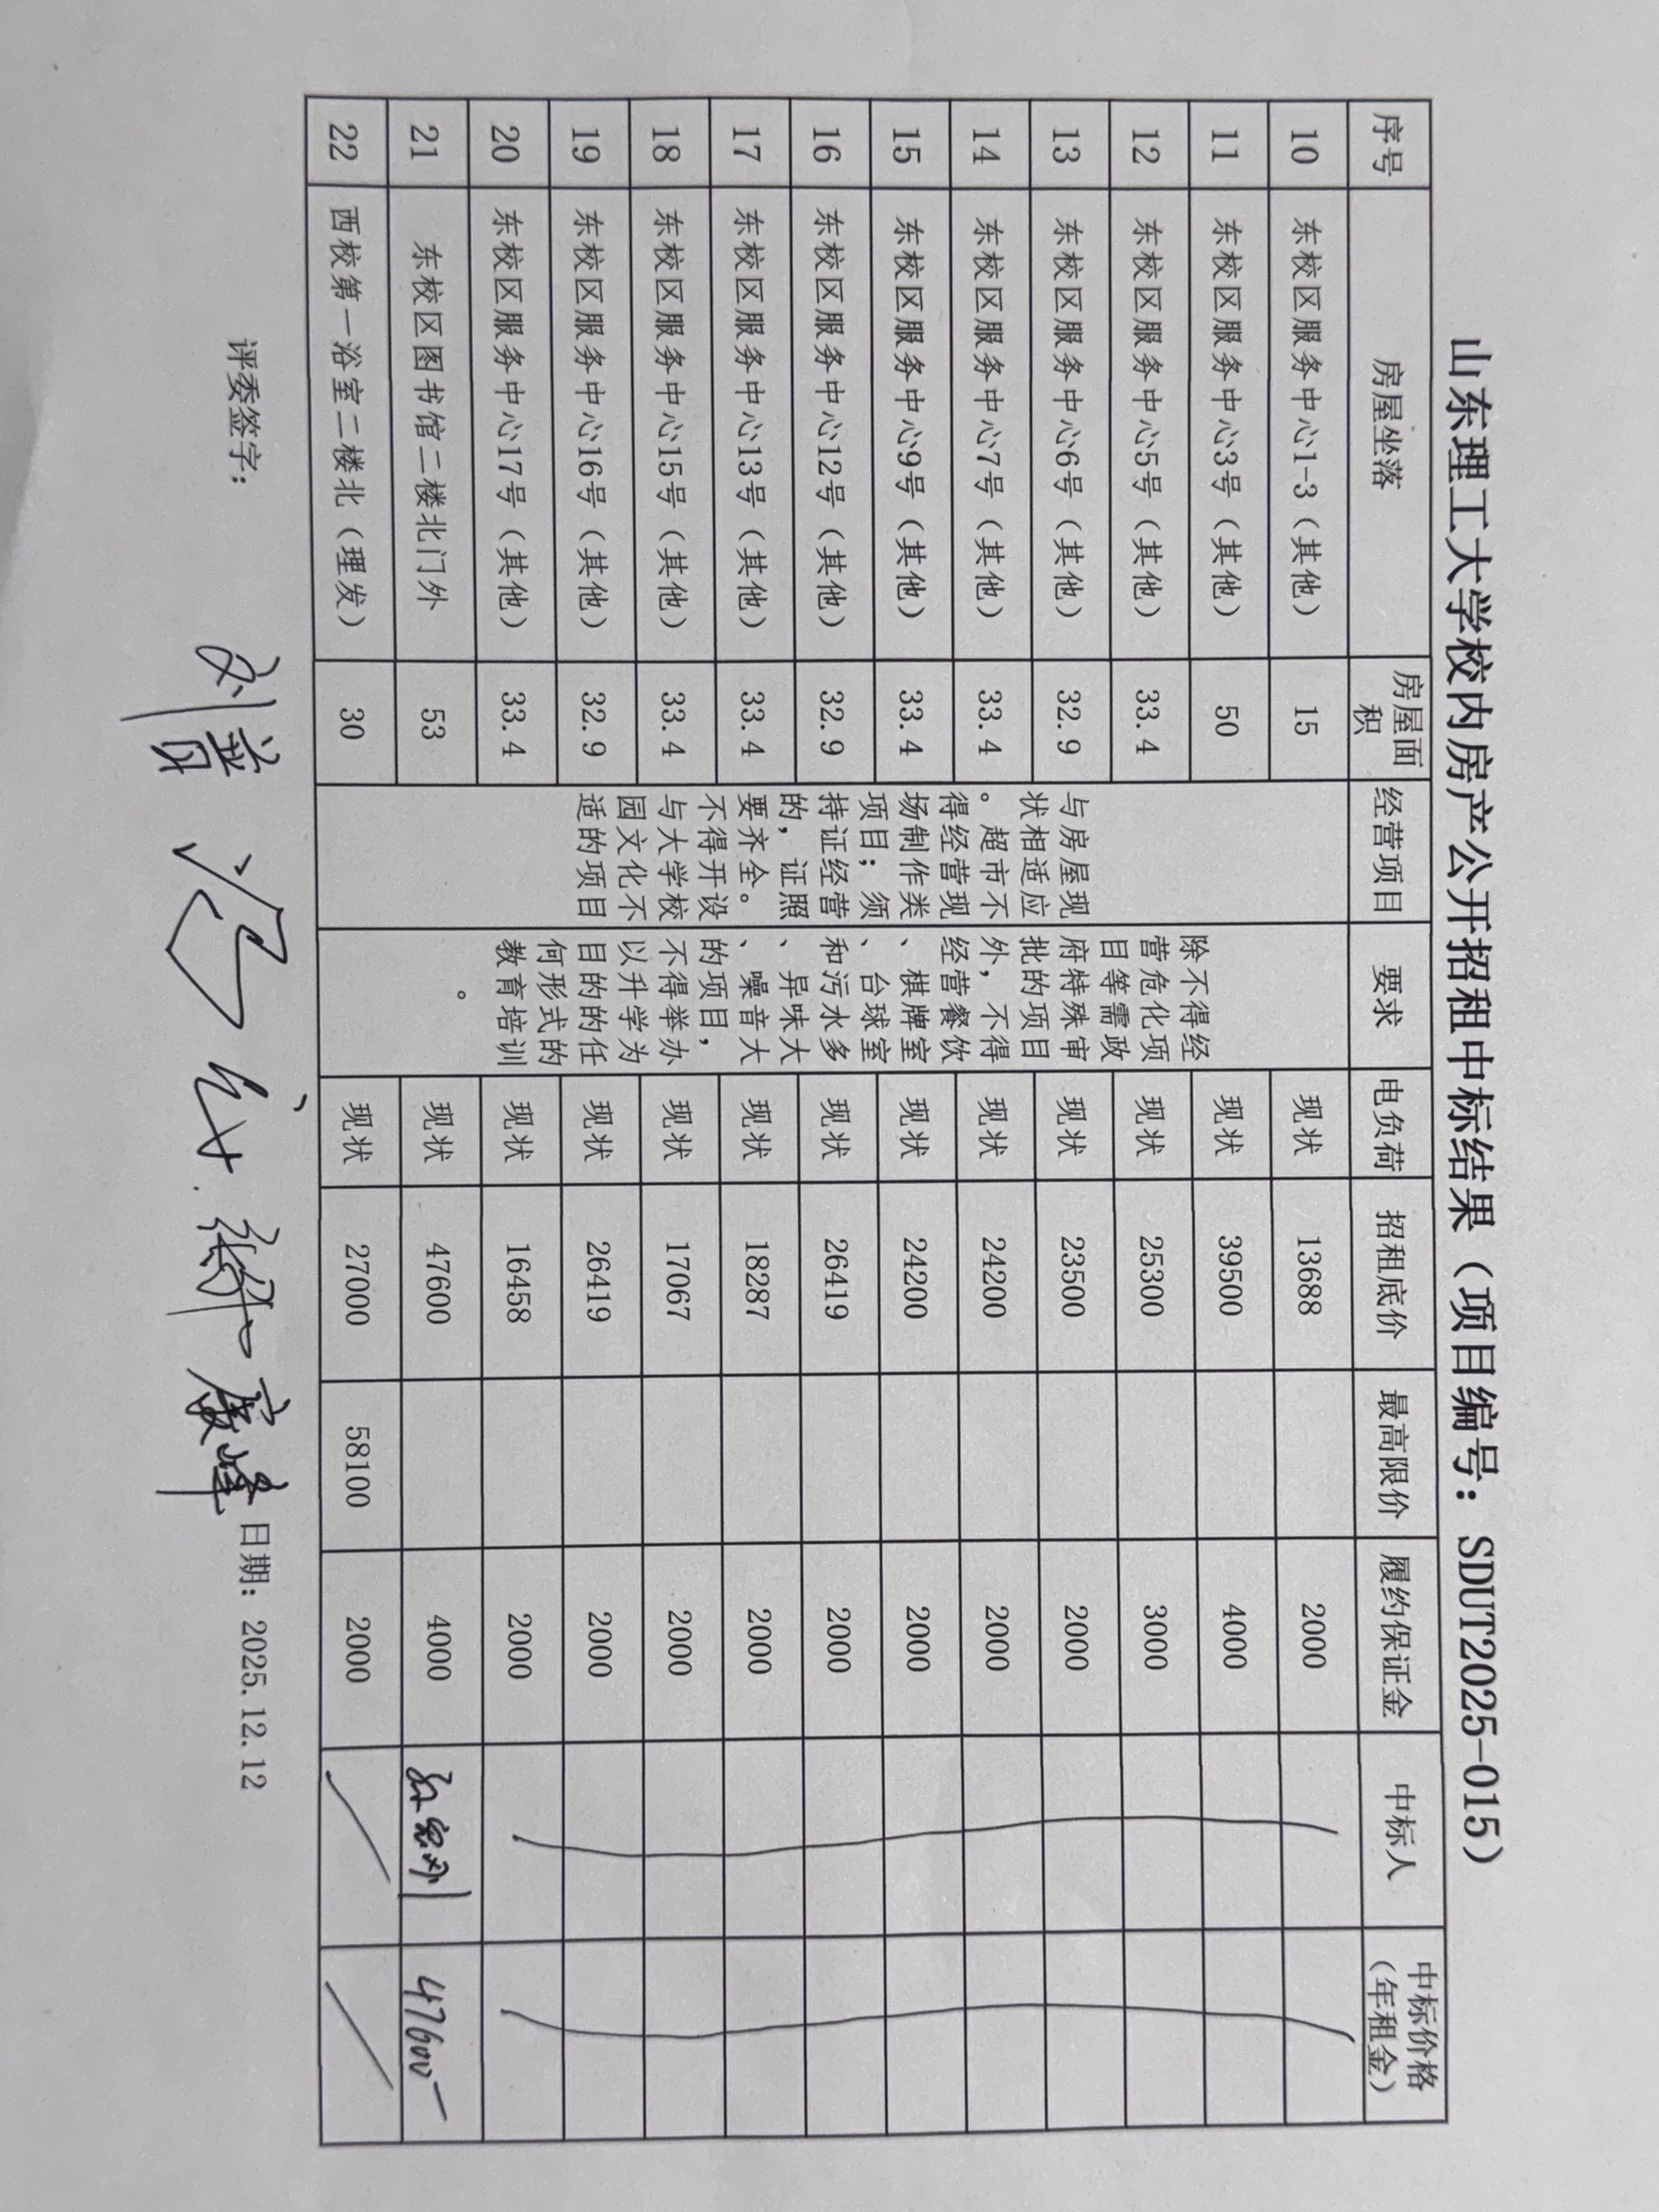 山东理工大学校内房产公开招租中标结果（项目编号：SDUT2025-015）
序号 房屋坐落 房屋面积 经营项目 要求 电负荷 招租底价 最高限价 履约保证金 中标人 中标价格（年租金）
10 东校区服务中心1-3（其他） 15 现状 13688 2000
11 东校区服务中心3号（其他） 50 现状 39500 4000
12 东校区服务中心5号（其他） 33.4 现状 25300 3000
13 东校区服务中心6号（其他） 32.9 现状 23500 2000
14 东校区服务中心7号（其他） 33.4 现状 24200 2000
15 东校区服务中心9号（其他） 33.4 现状 24200 2000
16 东校区服务中心12号（其他） 32.9 现状 26419 2000
17 东校区服务中心13号（其他） 33.4 现状 18287 2000
18 东校区服务中心15号（其他） 33.4 现状 17067 2000
19 东校区服务中心16号（其他） 32.9 现状 26419 2000
20 东校区服务中心17号（其他） 33.4 现状 16458 2000
21 东校区图书馆二楼北门外 53 现状 47600 4000 47600
22 西校第一浴室二楼北（理发） 30 现状 27000 58100 2000
与房屋现
状相适应
。超市不
得经营现
场制作类
项目；须
持证经营
的，证照
要齐全。
不得开设
与大学校
园文化不
适的项目
除不得经
营危化项
目等需政
府特殊审
批的项目
外，不得
经营餐饮
、棋牌室
、台球室
和污水多
、异味大
、噪音大
的项目，
不得举办
以升学为
目的的任
何形式的
教育培训
。
评委签字：
日期：2025.12.12